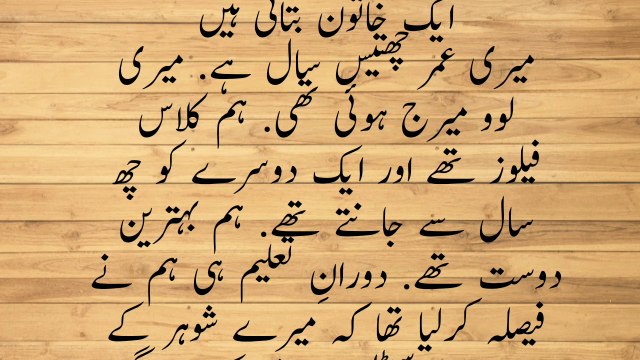 ایک خاتون بتاتی ہیں
میری عمر چھتیس سال ہے. میری
لوو میرج ہوئی تھی. ہم کلاس
فیلوز تھے اور ایک دوسرے کو چھ
سال سے جانتے تھے. ہم بہترین
دوست تھے. دورانِ تعلیم ہی ہم نے
فیصلہ کرلیا تھا کہ میرے شوہر کے